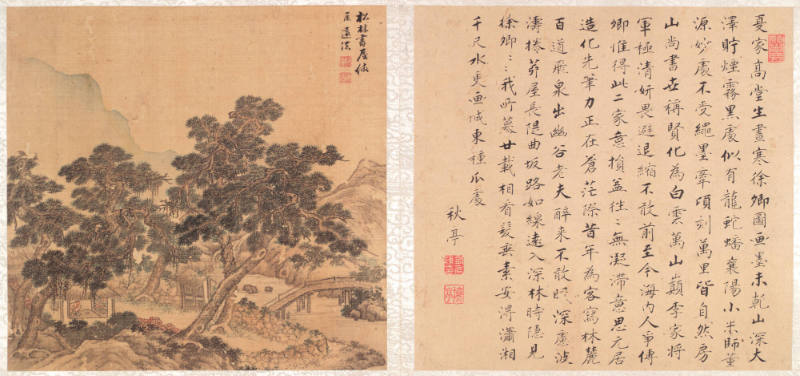 憂家高堂生晝寒徐卿圖畫墨未乾山深大
澤貯煙霧黑處似有龍蛇蟠襄陽小米師董
源妙處不受繩墨牽頃刻萬里皆自然房
山尚書世稱賢化為白雲萬山巔李家將
軍極清妍畏避退縮不敢前至今海內人爭傳
卿惟得此二家意損益往〻無凝滯意思元居
造化先筆力正在蒼茫際昔年為客寫林麓
百道飛泉出幽谷老夫醉來不敢眠深慮波
濤捲茅屋長隄曲坂路如線遠入深林時隱見
徐卿〻〻我所慕廿載相看髮垂素安得瀟湘
千尺水更画城東種瓜處
秋亭
松林書屋仿
遠法